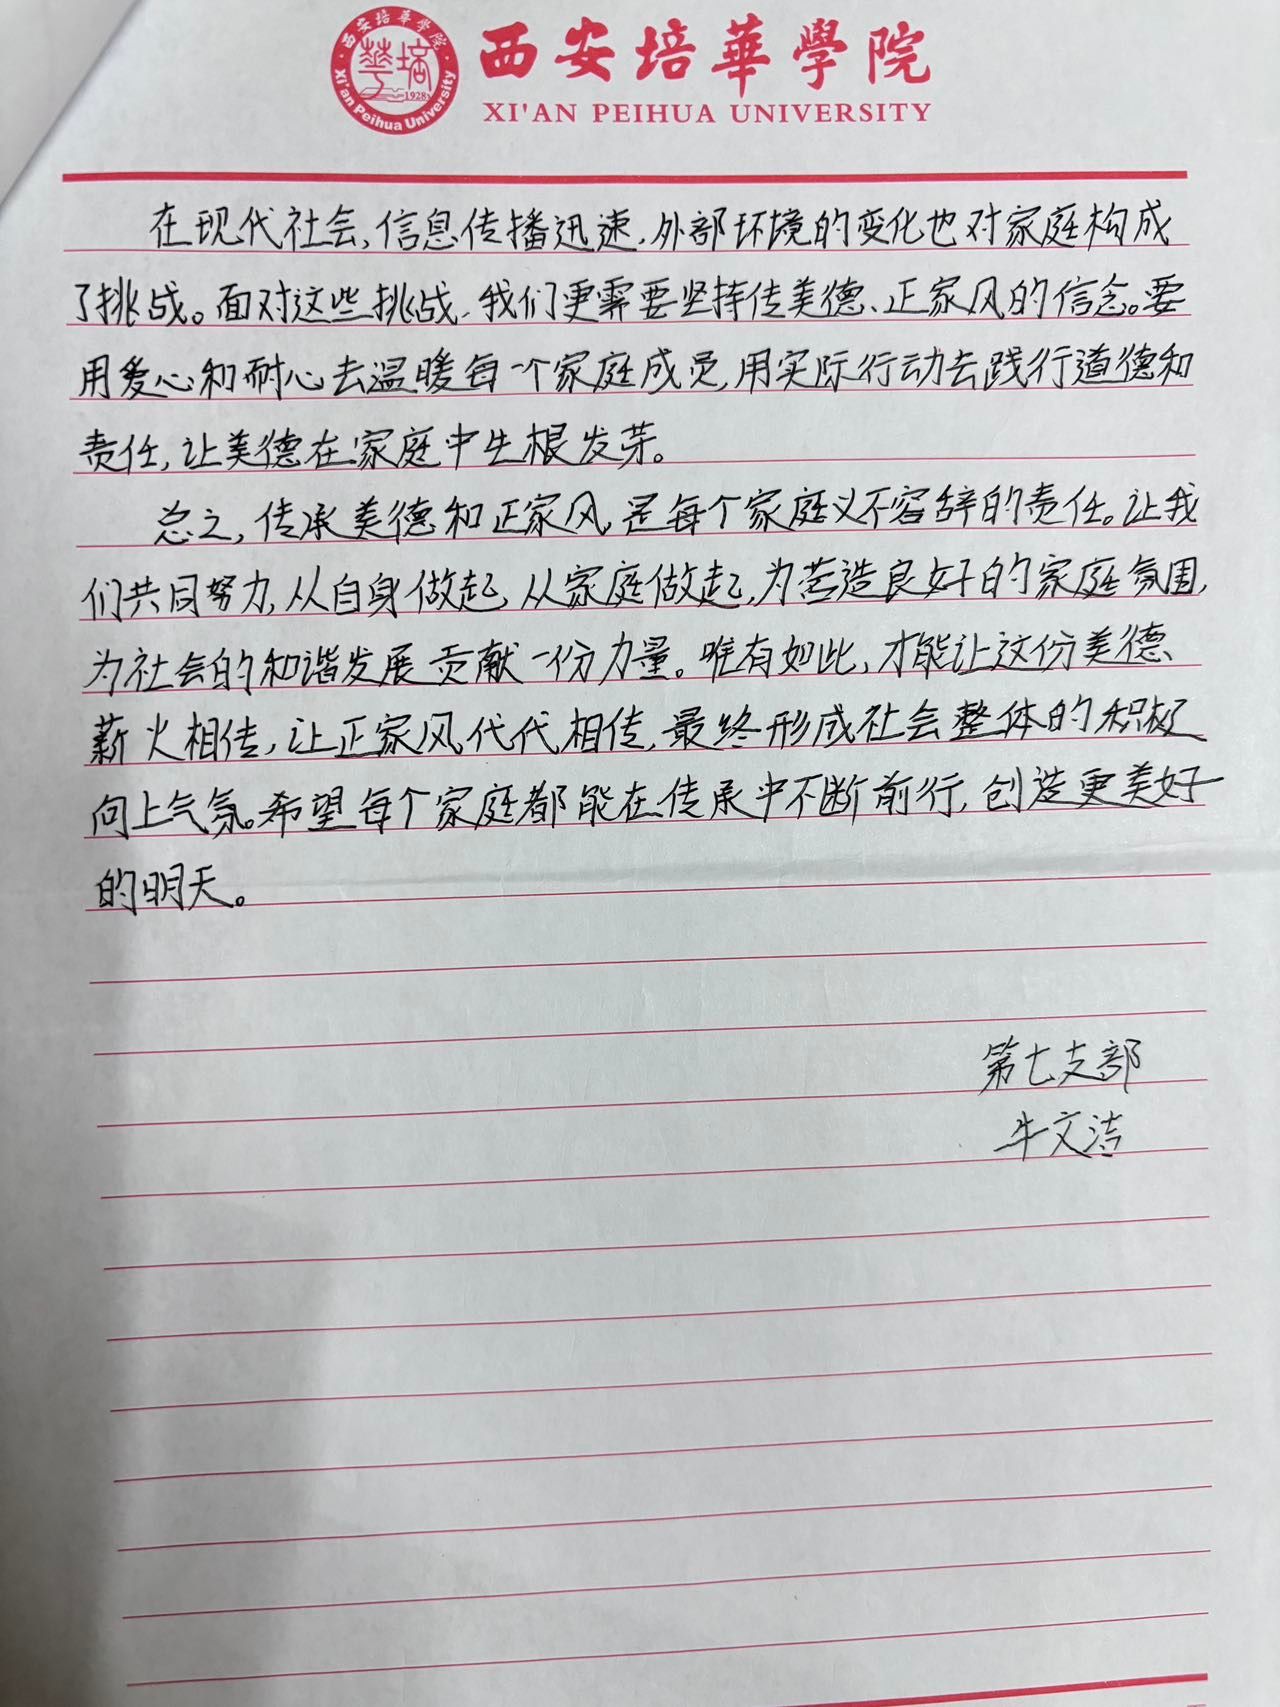 西安培華學院
XI'AN PEIHUA UNIVERSITY
西安培華學院
1928
Xi'an Peihua University
在现代社会,信息传播迅速,外部环境的变化也对家庭构成
了挑战。面对这些挑战,我们更需要坚持传美德、正家风的信念。要
用爱心和耐心去温暖每一个家庭成员,用实际行动去践行道德和
责任,让美德在家庭中生根发芽。
总之,传承美德和正家风,是每个家庭义不容辞的责任。让我
们共同努力,从自身做起,从家庭做起,为营造良好的家庭氛围,
为社会的和谐发展贡献一份力量。唯有如此,才能让这份美德、
薪火相传,让正家风代代相传,最终形成社会整体的积极
向上气氛。希望每个家庭都能在传承中不断前行,创造更美好
的明天。
第七支部
牛文洁